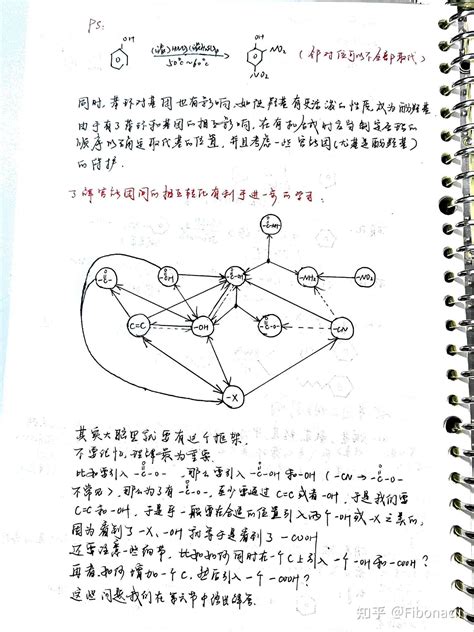 PS:
OH
(浓)HNO₃(浓)H₂SO₄
50℃~60℃
OH
NO₂
NO₂
(邻对位可以不全部取代)
同时,苯环对基团也有影响,如使羟基有更活泼的性质,成为酚羟基
由于有了苯环和基团的相互影响,在有机合成时应当制定合理的
顺序以确定取代基的位置,并且考虑一些官能团(尤其是酚羟基)
的保护.
了解官能团间的相互转化有利于进一步的学习:
-C-
O
-NH₂
-NO₂
C=C
-OH
-C-O-
O
-CN
-X
其实大脑里就要有这个框架.
不要死记,理解最为重要.
比如要引入 -C-O- ,那么要引入 -C-OH 和 -OH (-CN → -C-O-
不常见),那么为了有 -C-O-,至少要通过 C=C 或者 -OH,于是我们要
C=C 和 -OH,于是乎一般要在合适的位置引入两个 -OH 或 -X 之类的,
因为看到了 -X、-OH 就等于是看到了 -COOH
还要注意一些细节,比如如何同时在一个C上引入一个 -OH 和 -COOH?
再者,如何增加一个C,然后引入一个 -COOH?
这些问题我们在第六节中给出解答.
知乎 @Fibonacci